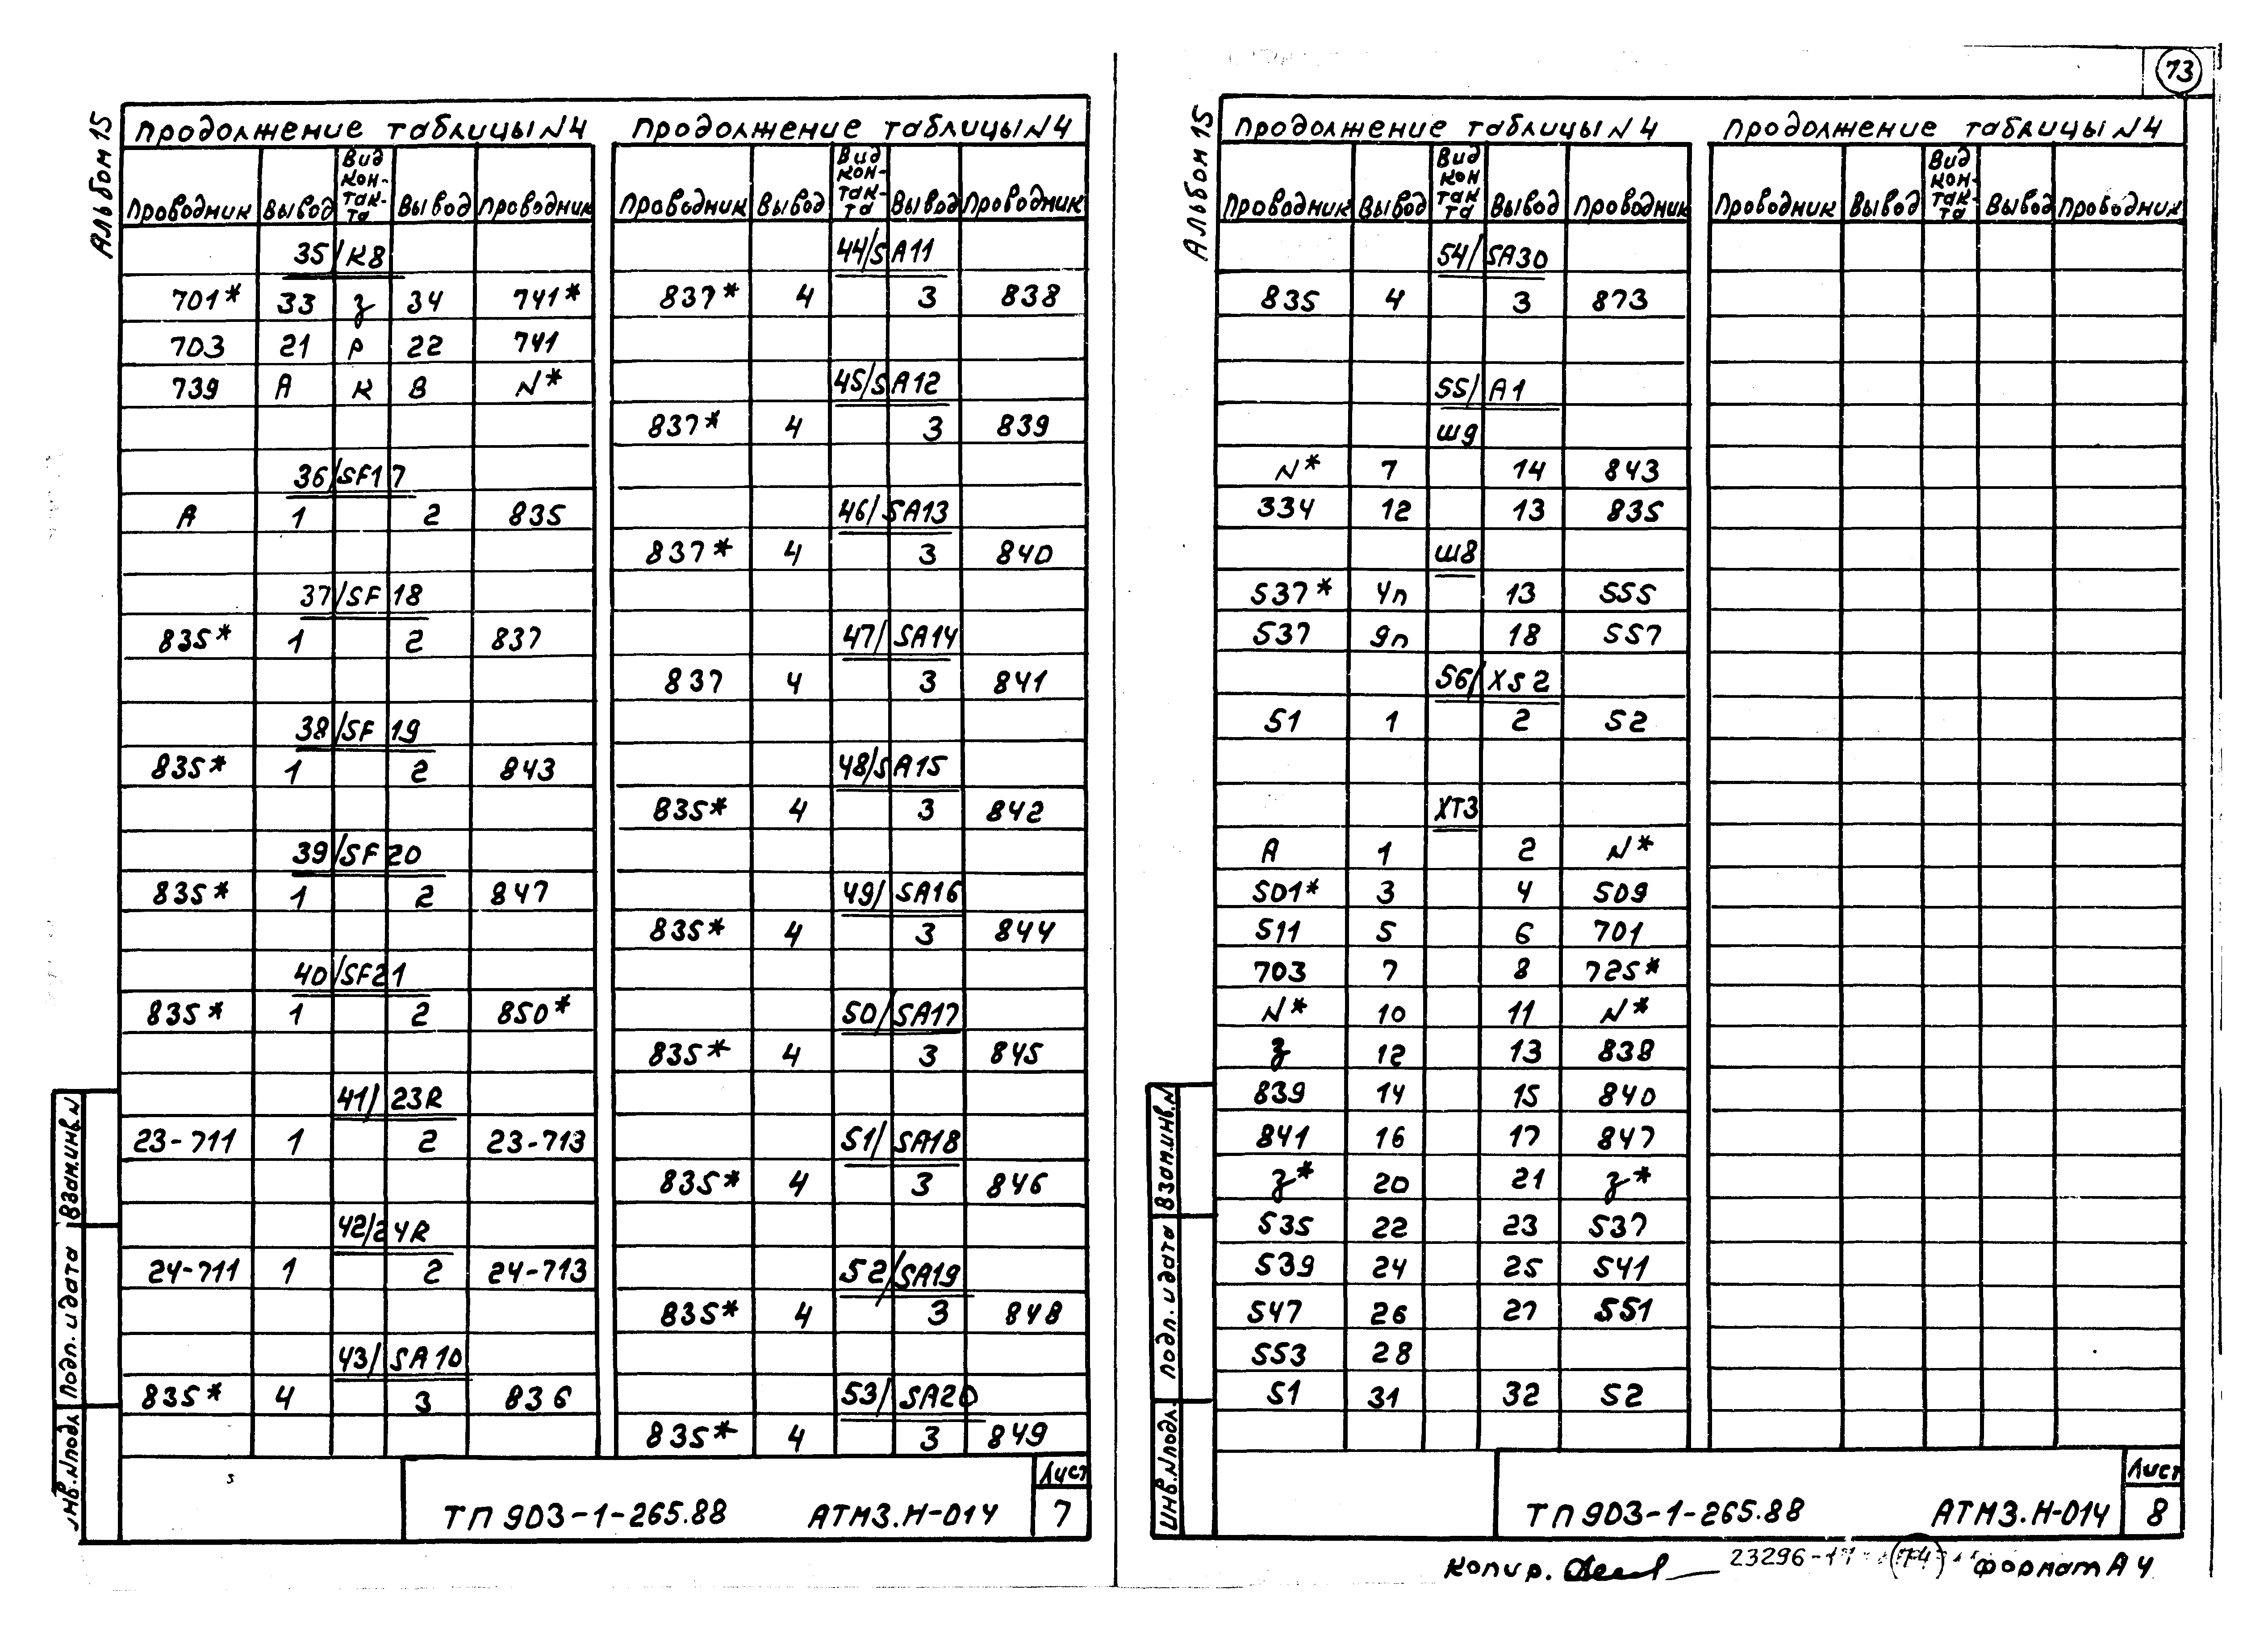 73
Альбом 15
Продолжение таблицы N4
Проводник Вывод Вид кон-так-та Вывод Проводник
35/K8
701* 33 з 34 741*
703 21 р 22 741
739 A к B N*
36/SF17
A 1 2 835
37/SF18
835* 1 2 837
38/SF19
835* 1 2 843
39/SF20
835* 1 2 847
40/SF21
835* 1 2 850*
41/23R
23-711 1 2 23-713
42/24R
24-711 1 2 24-713
43/SA10
835* 4 3 836
Продолжение таблицы N4
Проводник Вывод Вид кон-так-та Вывод Проводник
44/SA11
837* 4 3 838
45/SA12
837* 4 3 839
46/SA13
837* 4 3 840
47/SA14
837 4 3 841
48/SA15
835* 4 3 842
49/SA16
835* 4 3 844
50/SA17
835* 4 3 845
51/SA18
835* 4 3 846
52/SA19
835* 4 3 848
53/SA20
835* 4 3 849
Взам.инв.N
Подп. и дата
Инв.N подл.
ТП 903-1-265.88 АТМ3.Н-014
Лист
7
Альбом 15
Продолжение таблицы N4
Проводник Вывод Вид кон так та Вывод Проводник
54/SA30
835 4 3 873
55/A1
Ш9
N* 7 14 843
334 12 13 835
Ш8
537* 4п 13 555
537 9п 18 557
56/XS2
51 1 2 52
XT3
A 1 2 N*
501* 3 4 509
511 5 6 701
703 7 8 725*
N* 10 11 N*
з 12 13 838
839 14 15 840
841 16 17 847
з* 20 21 з*
535 22 23 537
539 24 25 541
547 26 27 551
553 28
51 31 32 52
Продолжение таблицы N4
Проводник Вывод Вид кон-так-та Вывод Проводник
Взам.инв.N
Подп. и дата
Инв.N подл.
ТП 903-1-265.88 АТМ3.Н-014
Лист
8
Копир. 23296- 74 Формат А4